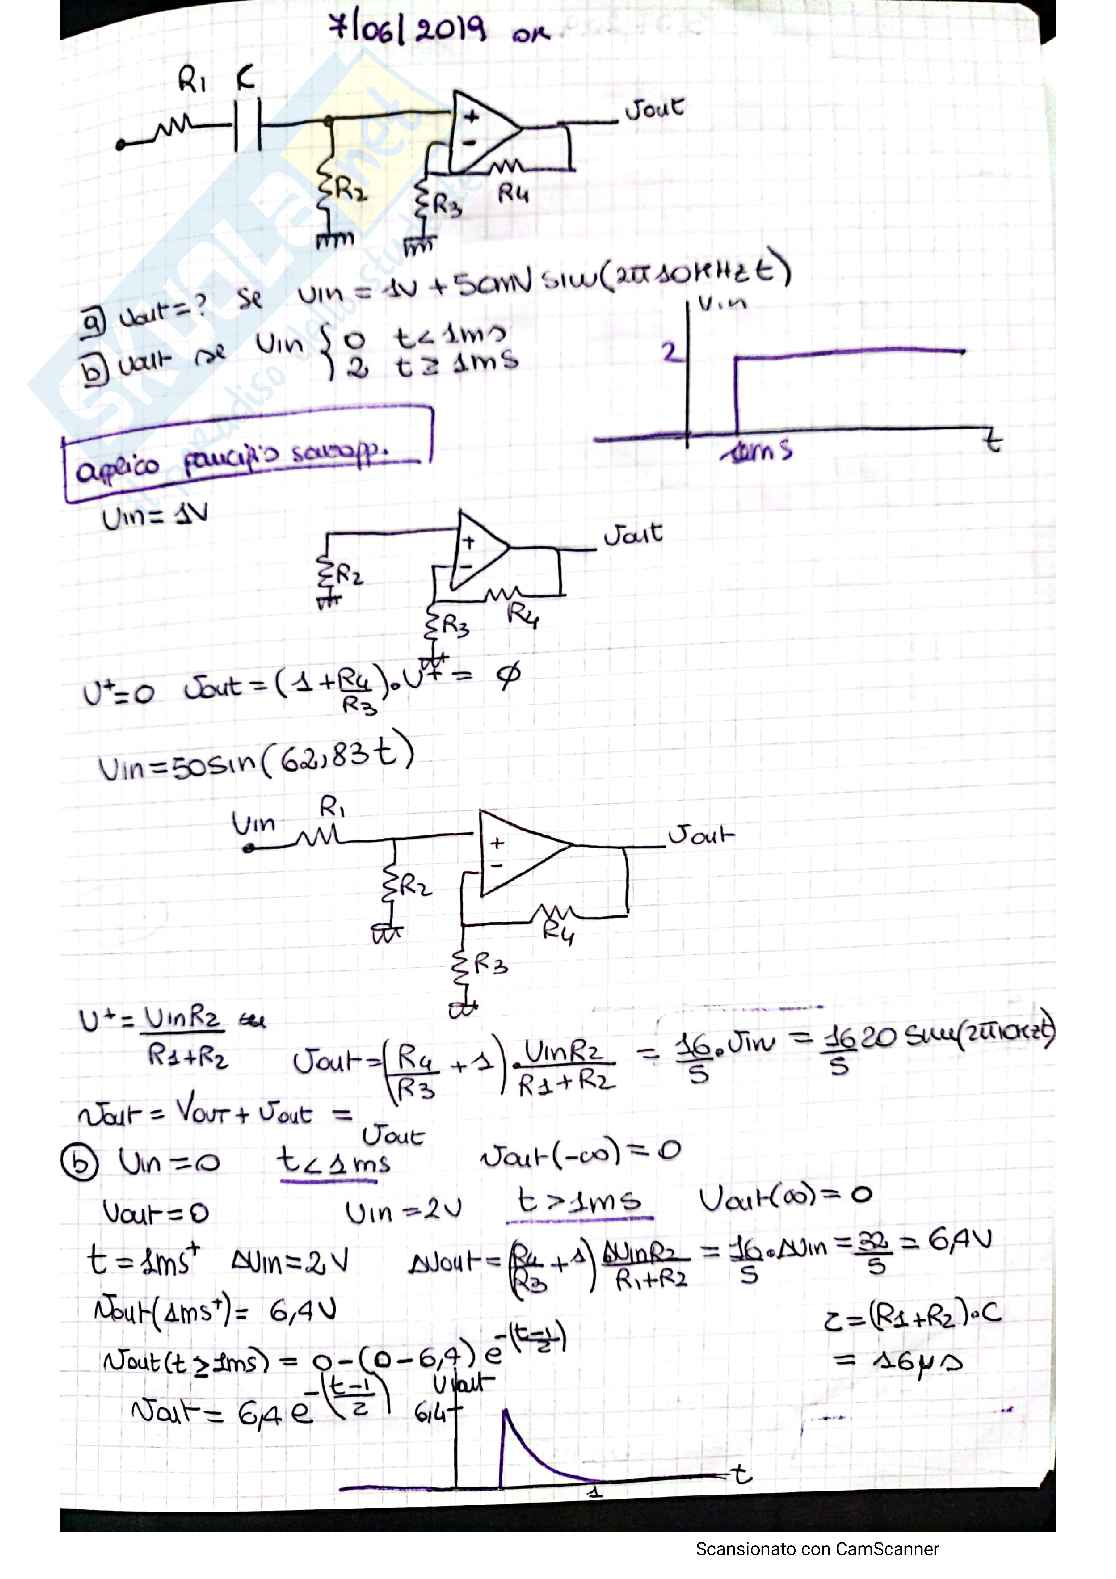 7/06/2019 OR
R1 C
+
-
Vout
R2
R3
R4
a) Vout=? se Vin = 1V + 50mV sin(2π10KHz t)
b) Vout se Vin { 0 t<1ms
2 t≥1ms
Vin
2
1ms
t
applico principio sovrapp.
Vin=1V
+
-
Vout
R2
R4
R3
V+=0 Vout=(1+R4/R3)·V+= ϕ
Vin=50sin(62,83t)
Vin
R1
+
-
Vout
R2
R4
R3
V+= VinR2/R1+R2
Vout=(R4/R3 +1)·VinR2/R1+R2 = 16/5·Vin = 16/5 20 sin(2π10KHzt)
Vout = VOUT + Vout = Vout
b) Vin=0 t<1ms Vout(-∞)=0
Vout=0 Vin=2V t>1ms Vout(∞)=0
t=1ms+ ΔVin=2V ΔVout=(R4/R3+1) ΔVinR2/R1+R2 = 16/5·ΔVin=32/5=6,4V
Vout(1ms+)= 6,4V
τ=(R1+R2)·C
= 16μs
Vout(t≥1ms) = 0-(0-6,4) e-(t-1/2)
Vout= 6,4 e-(t-1/2)
Vout
6,4
t
1
Scansionato con CamScanner